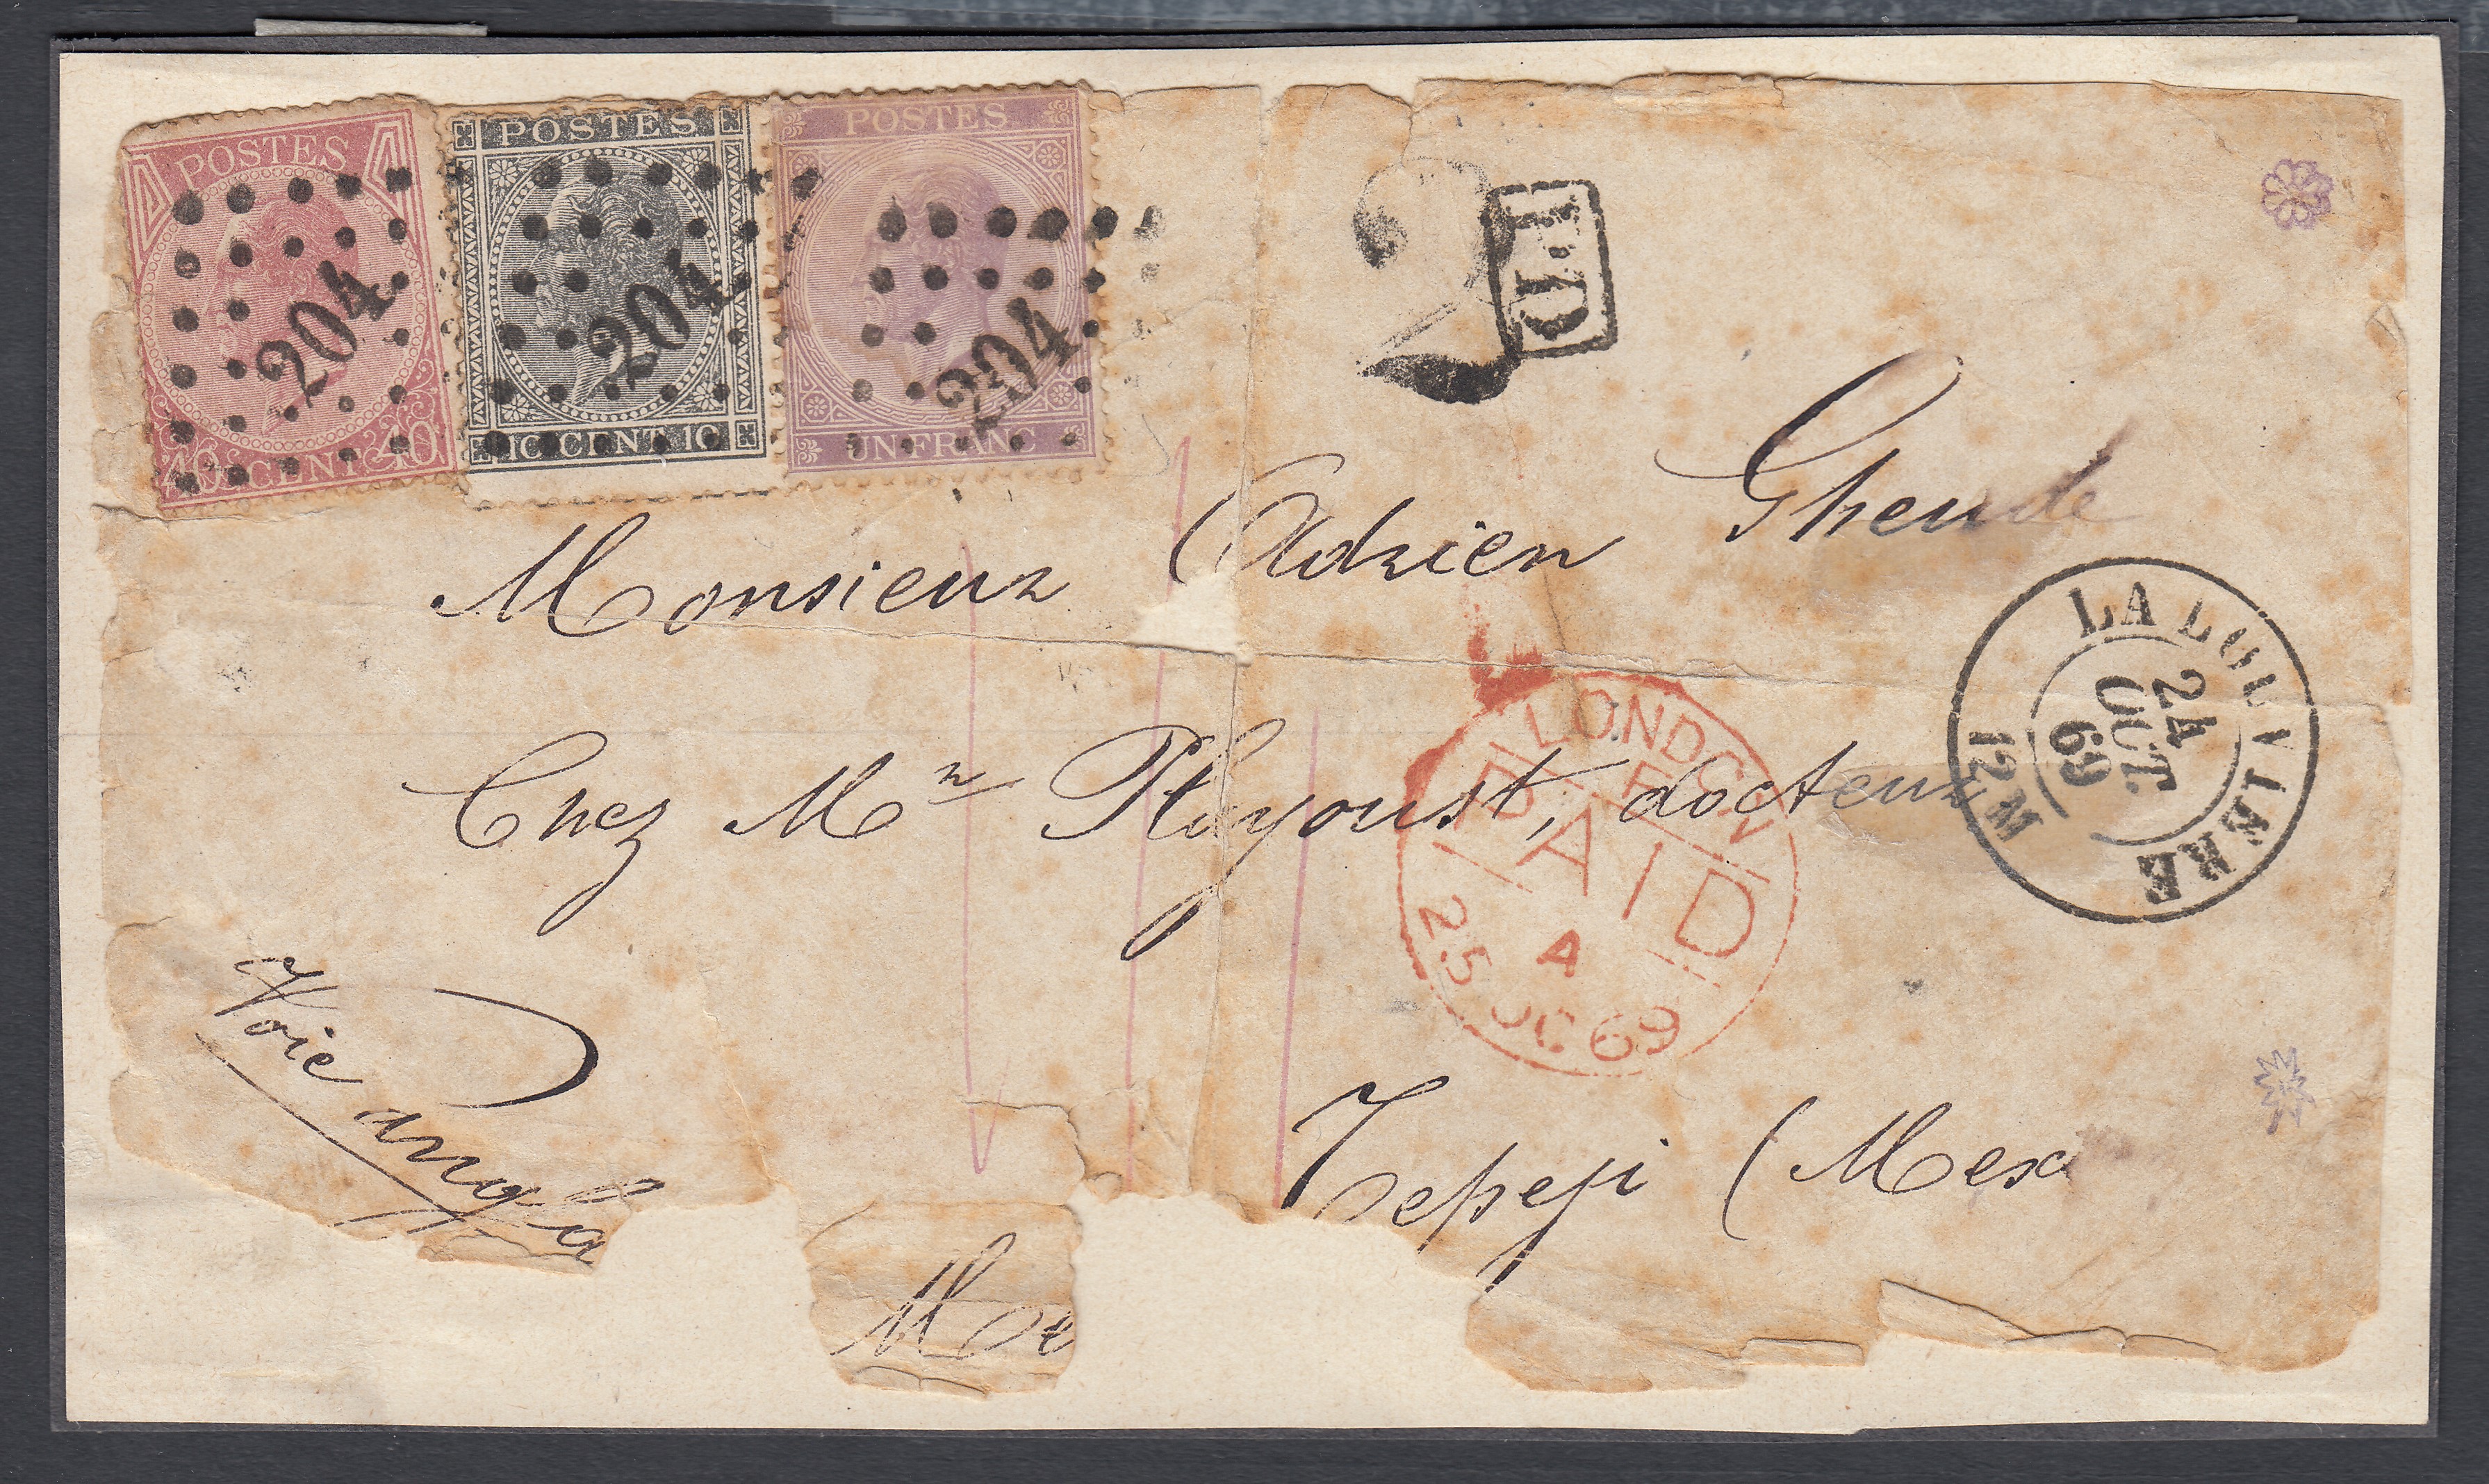 POSTES
40 CENT 40
204
POSTES
10 CENT 10
204
POSTES
UN FRANC
204
P.D
Monsieur Adrien Gheude
LA LOUVIERE
24
OCT.
69
12 M
Chez Mr Playoust, docteur
LONDON
PAID
A
25 OC 69
Voie angla
Tepeji (Mex
Me